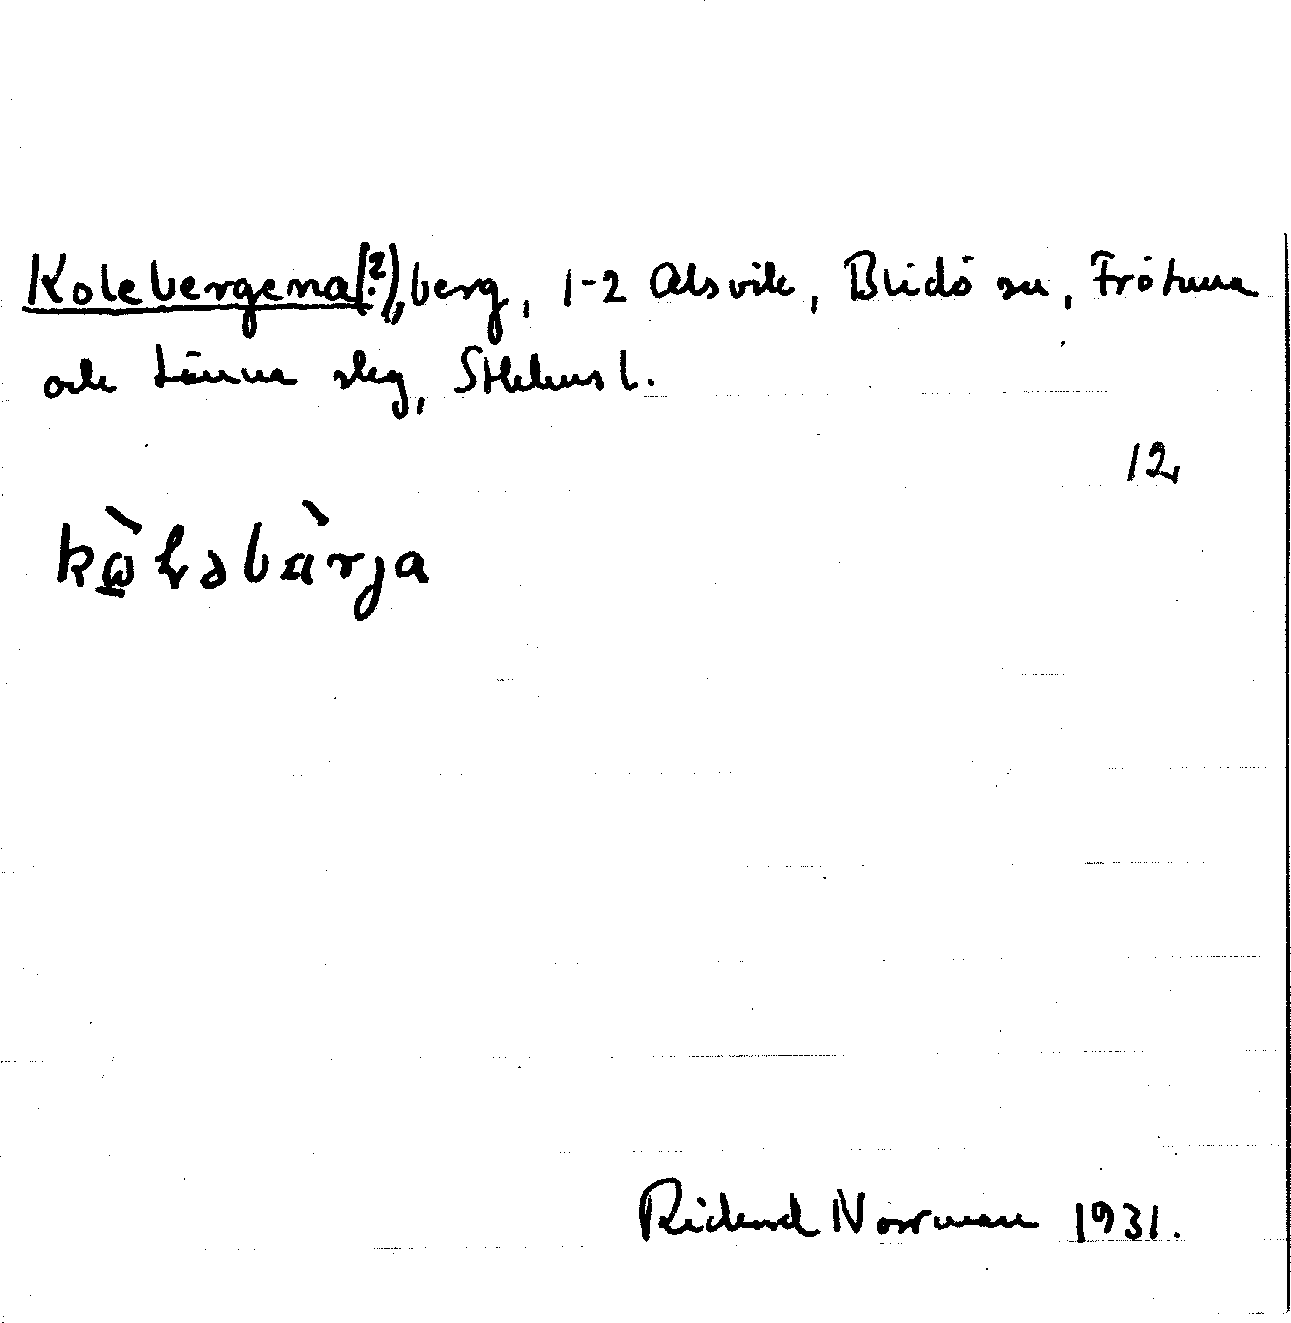 Kolebergena(?), berg, 1-2 Alsvik, Blidö sn, Frötuna
och Länna skg, Sthlms l.
12
kὼLəbὰrja
Richard Norrman 1931.